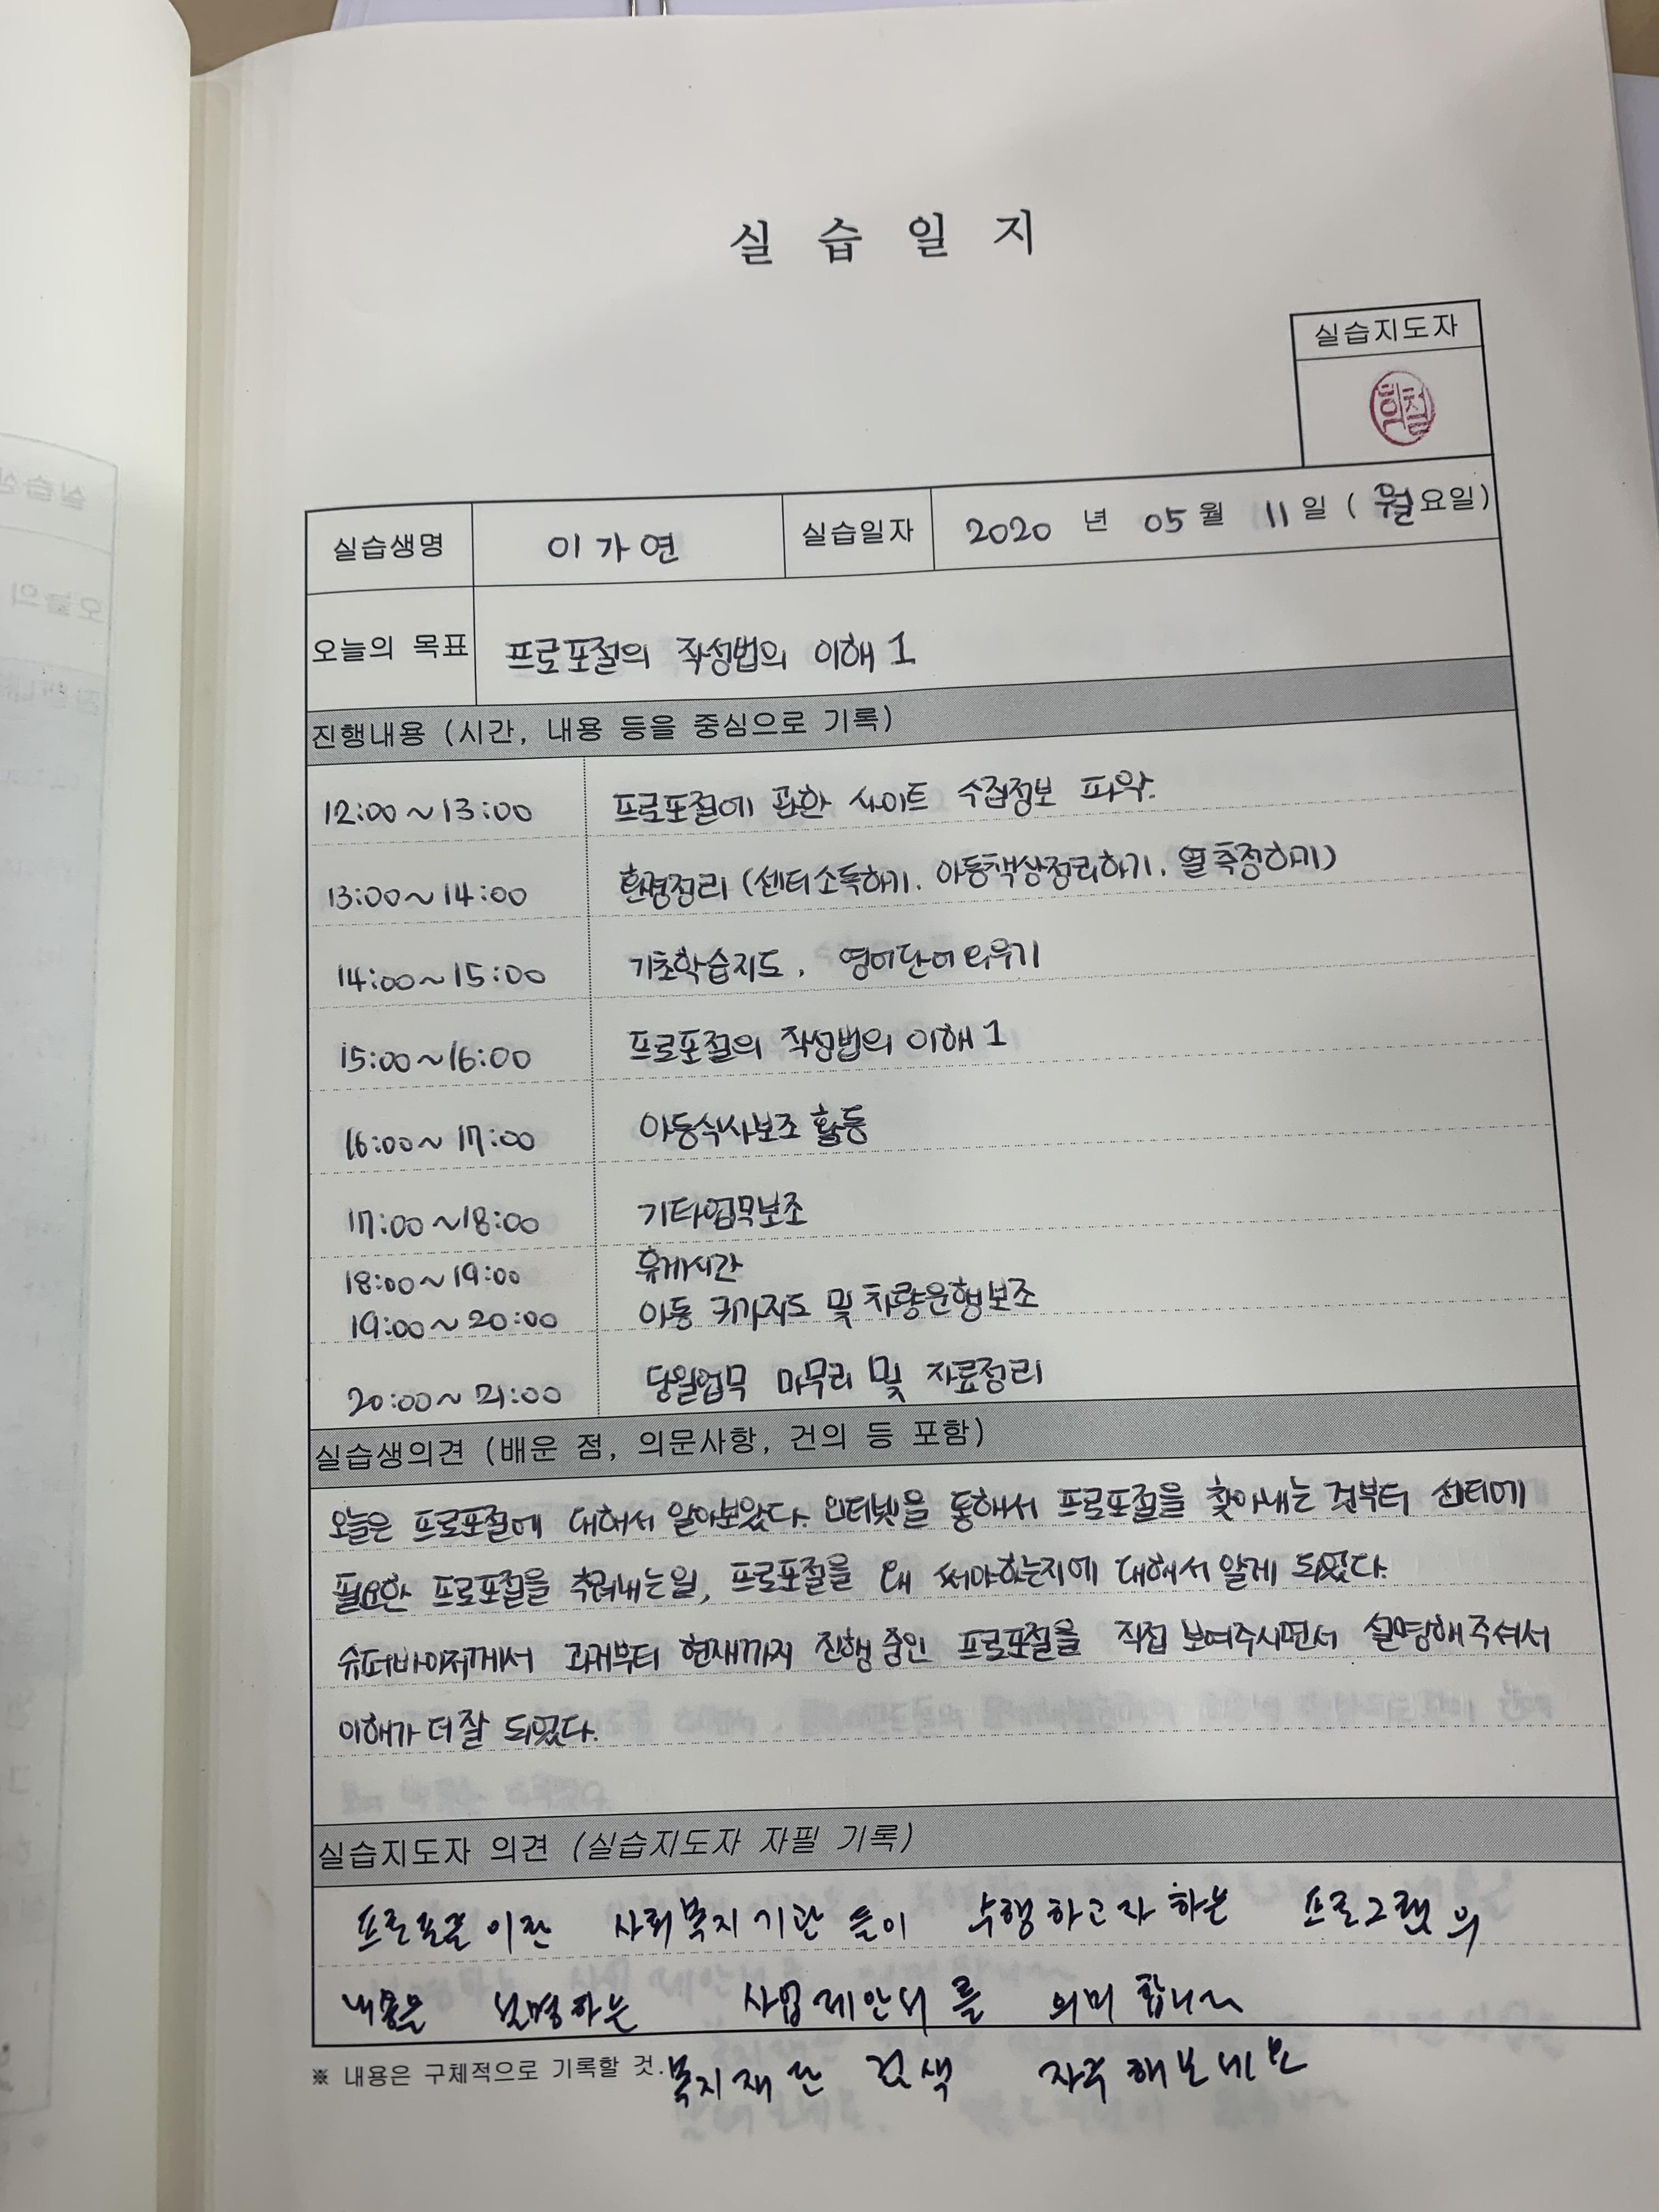 실 습 일 지
실습지도자
실습생명 이가연 실습일자 2020 년 05 월 11 일 ( 월요일)
오늘의 목표 프로포절의 작성법의 이해 1
진행내용 (시간, 내용 등을 중심으로 기록)
12:00 ~ 13:00 프로포절에 관한 사이트 수집정보 파악.
13:00 ~ 14:00 환경정리 (센터소독하기, 아동책상정리하기, 열측정하기)
14:00 ~ 15:00 기초학습지도, 영어단어 외우기
15:00 ~ 16:00 프로포절의 작성법의 이해 1
16:00 ~ 17:00 아동식사보조 활동
17:00 ~ 18:00 기타업무보조
18:00 ~ 19:00 휴게시간
19:00 ~ 20:00 아동 귀가지도 및 차량운행보조
20:00 ~ 21:00 당일업무 마무리 및 자료정리
실습생의견 (배운 점, 의문사항, 건의 등 포함)
오늘은 프로포절에 대해서 알아보았다. 인터넷을 통해서 프로포절을 찾아내는 것부터 센터에
필요한 프로포절을 추려내는일, 프로포절을 왜 써야하는지에 대해서 알게 되었다.
슈퍼바이저께서 과거부터 현재까지 진행 중인 프로포절을 직접 보여주시면서 설명해 주셔서
이해가 더 잘 되었다.
실습지도자 의견 (실습지도자 자필 기록)
프로포절이란 사회복지기관 들이 수행하고자 하는 프로그램의
내용을 설명하는 사업제안서를 의미 합니다
※ 내용은 구체적으로 기록할 것.
복지재단 검색 자주 해보세요